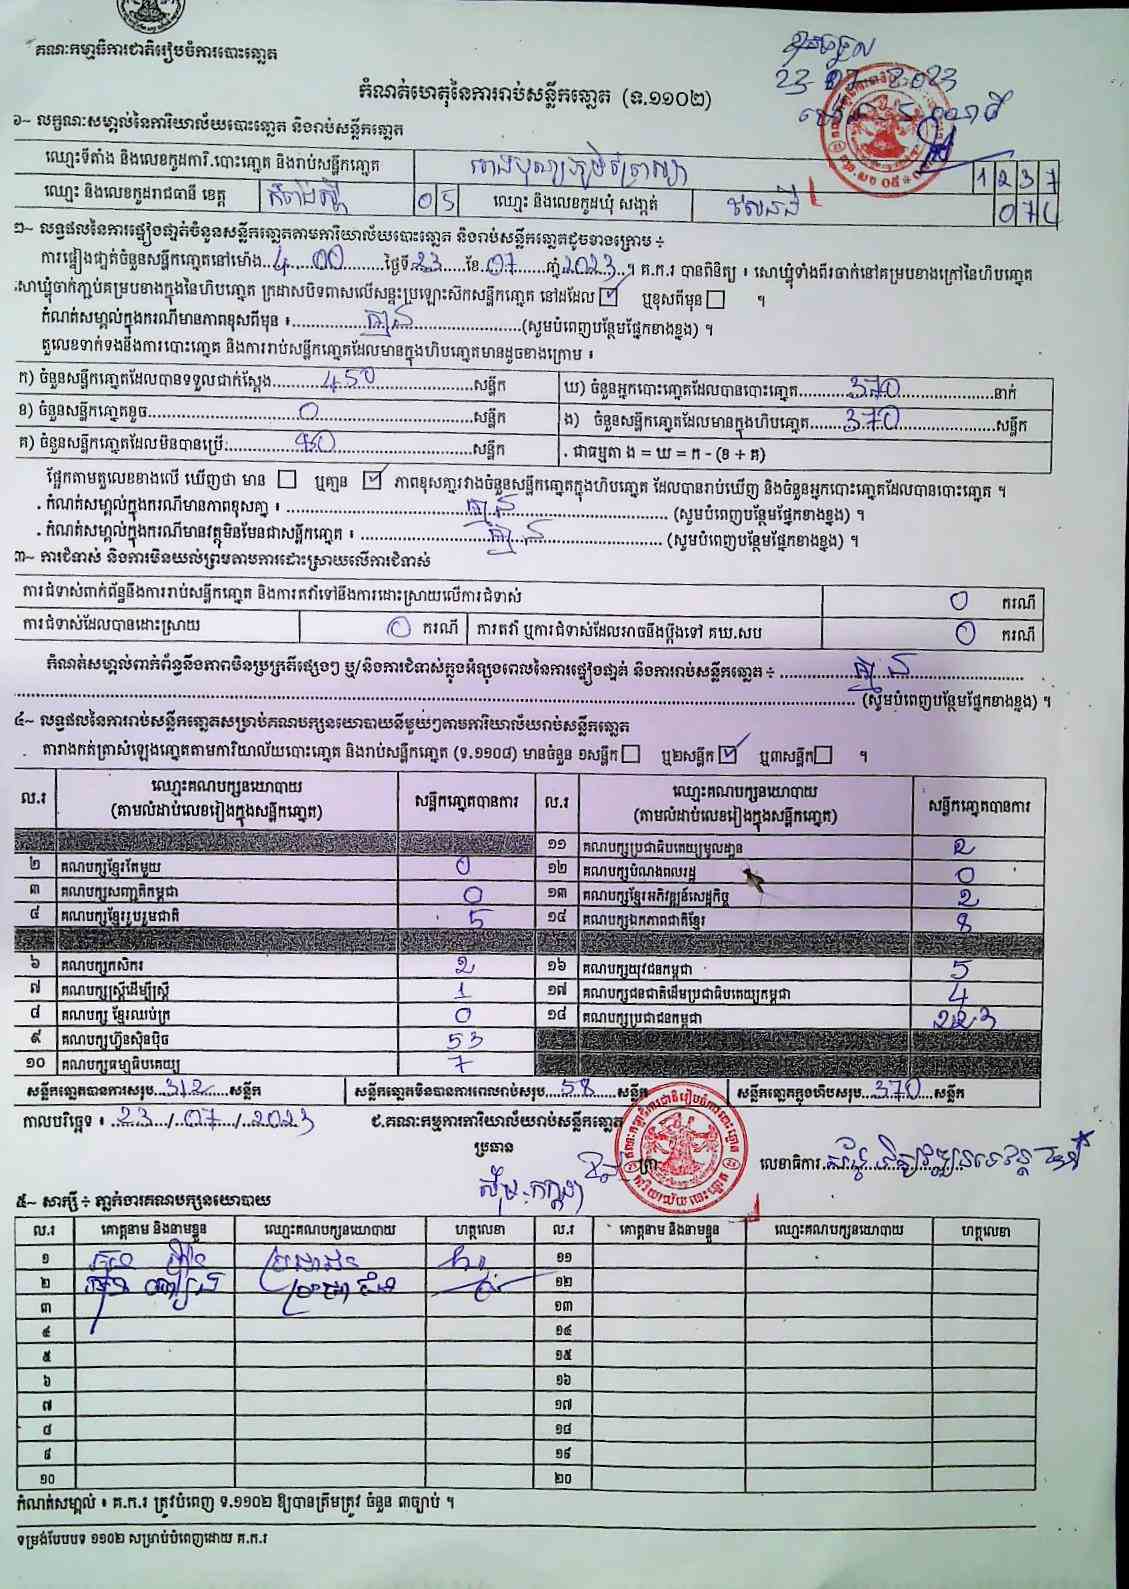 គណៈកម្មាធិការជាតិរៀបចំការបោះឆ្នោត
23 07 2023
កំណត់ហេតុនៃការរាប់សន្លឹកឆ្នោត (ទ.១១០២)
១~ លក្ខណៈសម្គាល់នៃការិយាល័យបោះឆ្នោត និងរាប់សន្លឹកឆ្នោត
ឈ្មោះទីតាំង និងលេខកូដការិ.បោះឆ្នោត និងរាប់សន្លឹកឆ្នោត 1 2 3 7
ឈ្មោះ និងលេខកូដរាជធានី ខេត្ត កំពង់ស្ពឺ 0 5 ឈ្មោះ និងលេខកូដឃុំ សង្កាត់ 0 7 4
២~ លទ្ធផលនៃការផ្ទៀងផ្ទាត់ចំនួនសន្លឹកឆ្នោតតាមការិយាល័យបោះឆ្នោត និងរាប់សន្លឹកឆ្នោតដូចខាងក្រោម ÷
ការផ្ទៀងផ្ទាត់ចំនួនសន្លឹកឆ្នោតនៅម៉ោង 4 00 ថ្ងៃទី 23 ខែ 07 ឆ្នាំ 2023 ។ គ.ក.រ បានពិនិត្យ ៖ សោឃ្លុំទាំងពីរចាក់នៅគម្របខាងក្រៅនៃហិបឆ្នោត
សោឃ្លុំចាក់ភ្ជាប់គម្របខាងក្នុងនៃហិបឆ្នោត ក្រដាសបិទពាសលើសន្ទះប្រឡោះស៊កសន្លឹកឆ្នោត នៅដដែល ☑ ឬខុសពីមុន ☐ ។
កំណត់សម្គាល់ក្នុងករណីមានភាពខុសពីមុន ៖ គ្មាន (សូមបំពេញបន្ថែមផ្នែកខាងខ្នង) ។
តួលេខទាក់ទងនឹងការបោះឆ្នោត និងការរាប់សន្លឹកឆ្នោតដែលមានក្នុងហិបឆ្នោតមានដូចខាងក្រោម ៖
ក) ចំនួនសន្លឹកឆ្នោតដែលបានទទួលជាក់ស្តែង 450 សន្លឹក ឃ) ចំនួនអ្នកបោះឆ្នោតដែលបានបោះឆ្នោត 370 នាក់
ខ) ចំនួនសន្លឹកឆ្នោតខូច 0 សន្លឹក ង) ចំនួនសន្លឹកឆ្នោតដែលមានក្នុងហិបឆ្នោត 370 សន្លឹក
គ) ចំនួនសន្លឹកឆ្នោតដែលមិនបានប្រើ: សន្លឹក . ជាធម្មតា ង = ឃ = ក - (ខ + គ)
ផ្អែកតាមតួលេខខាងលើ ឃើញថា មាន ☐ ឬគ្មាន ☑ ភាពខុសគ្នារវាងចំនួនសន្លឹកឆ្នោតក្នុងហិបឆ្នោត ដែលបានរាប់ឃើញ និងចំនួនអ្នកបោះឆ្នោតដែលបានបោះឆ្នោត ។
. កំណត់សម្គាល់ក្នុងករណីមានភាពខុសគ្នា ៖ គ្មាន (សូមបំពេញបន្ថែមផ្នែកខាងខ្នង) ។
. កំណត់សម្គាល់ក្នុងករណីមានវត្ថុមិនមែនជាសន្លឹកឆ្នោត ៖ គ្មាន (សូមបំពេញបន្ថែមផ្នែកខាងខ្នង) ។
៣~ ការជំទាស់ និងការមិនយល់ព្រមតាមការដោះស្រាយលើការជំទាស់
ការជំទាស់ពាក់ព័ន្ធនឹងការរាប់សន្លឹកឆ្នោត និងការតវ៉ាទៅនឹងការដោះស្រាយលើការជំទាស់ 0 ករណី
ការជំទាស់ដែលបានដោះស្រាយ 0 ករណី ការតវ៉ា ឬការជំទាស់ដែលអាចនឹងប្តឹងទៅ គឃ.សប 0 ករណី
កំណត់សម្គាល់ពាក់ព័ន្ធនឹងភាពមិនប្រក្រតីផ្សេងៗ ឬ/និងការជំទាស់ក្នុងអំឡុងពេលនៃការផ្ទៀងផ្ទាត់ និងការរាប់សន្លឹកឆ្នោត ÷ គ្មាន
(សូមបំពេញបន្ថែមផ្នែកខាងខ្នង) ។
៤~ លទ្ធផលនៃការរាប់សន្លឹកឆ្នោតសម្រាប់គណបក្សនយោបាយនីមួយៗតាមការិយាល័យរាប់សន្លឹកឆ្នោត
តារាងកត់ត្រាសំឡេងឆ្នោតតាមការិយាល័យបោះឆ្នោត និងរាប់សន្លឹកឆ្នោត (ទ.១១០៨) មានចំនួន ១សន្លឹក ☐ ឬ២សន្លឹក ☑ ឬ៣សន្លឹក ☐ ។
ល.រ ឈ្មោះគណបក្សនយោបាយ (តាមលំដាប់លេខរៀងក្នុងសន្លឹកឆ្នោត) សន្លឹកឆ្នោតបានការ ល.រ ឈ្មោះគណបក្សនយោបាយ (តាមលំដាប់លេខរៀងក្នុងសន្លឹកឆ្នោត) សន្លឹកឆ្នោតបានការ
១១ គណបក្សប្រជាធិបតេយ្យមូលដ្ឋាន 2
២ គណបក្សខ្មែរតែមួយ 0 ១២ គណបក្សបំណងពលរដ្ឋ 0
៣ គណបក្សសញ្ជាតិកម្ពុជា 0 ១៣ គណបក្សខ្មែរអភិវឌ្ឍន៍សេដ្ឋកិច្ច 2
៤ គណបក្សខ្មែររួបរួមជាតិ 5 ១៤ គណបក្សឯកភាពជាតិខ្មែរ 8
៦ គណបក្សកសិករ 2 ១៦ គណបក្សយុវជនកម្ពុជា 5
៧ គណបក្សស្ត្រីដើម្បីស្ត្រី 1 ១៧ គណបក្សជនជាតិដើមប្រជាធិបតេយ្យកម្ពុជា 4
៨ គណបក្ស ខ្មែរឈប់ក្រ 0 ១៨ គណបក្សប្រជាជនកម្ពុជា 223
៩ គណបក្សហ៊្វុនស៊ិនប៉ិច 53
១០ គណបក្សធម្មាធិបតេយ្យ 7
សន្លឹកឆ្នោតបានការសរុប 312 សន្លឹក សន្លឹកឆ្នោតមិនបានការពេលរាប់សរុប 58 សន្លឹក សន្លឹកឆ្នោតក្នុងហិបសរុប 370 សន្លឹក
កាលបរិច្ឆេទ ៖ 23 / 07 / 2023 ជ.គណៈកម្មការការិយាល័យរាប់សន្លឹកឆ្នោត
ប្រធាន លេខាធិការ
៥~ សាក្សី ÷ ភ្នាក់ងារគណបក្សនយោបាយ
ល.រ គោត្តនាម និងនាមខ្លួន ឈ្មោះគណបក្សនយោបាយ ហត្ថលេខា ល.រ គោត្តនាម និងនាមខ្លួន ឈ្មោះគណបក្សនយោបាយ ហត្ថលេខា
១ ប្រជាជន ១១
២ ប្រជាជន ១២
៣ ១៣
៤ ១៤
៥ ១៥
៦ ១៦
៧ ១៧
៨ ១៨
៩ ១៩
១០ ២០
កំណត់សម្គាល់ ៖ គ.ក.រ ត្រូវបំពេញ ទ.១១០២ ឱ្យបានត្រឹមត្រូវ ចំនួន ៣ច្បាប់ ។
ទម្រង់បែបបទ ១១០២ សម្រាប់បំពេញដោយ គ.ក.រ